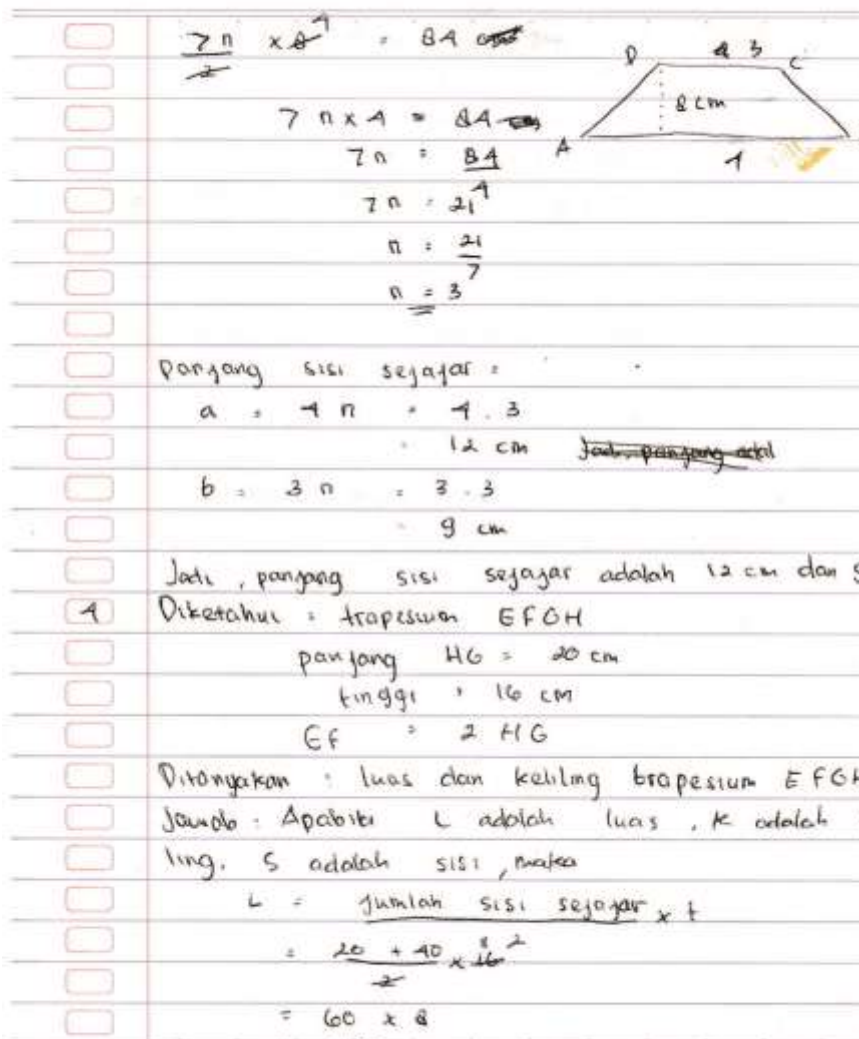 7n/2 × 8 4 = 84
D 3 C
8 cm
7 n × 4 = 84
A 4
7n = 84
4
7n = 21
n = 21
7
n = 3
panjang sisi sejajar =
a = 4 n = 4 . 3
= 12 cm
b = 3 n = 3 . 3
= 9 cm
Jadi, panjang sisi sejajar adalah 12 cm dan
4 Diketahui : trapesium EFGH
panjang HG = 20 cm
tinggi = 16 cm
EF = 2 HG
Ditanyakan : luas dan keliling trapesium EFGH
Jawab : Apabila L adalah luas, K adalah
ling. S adalah sisi, maka
L = Jumlah sisi sejajar × t
2
= 20 + 40 × 16 8
2
= 60 × 8